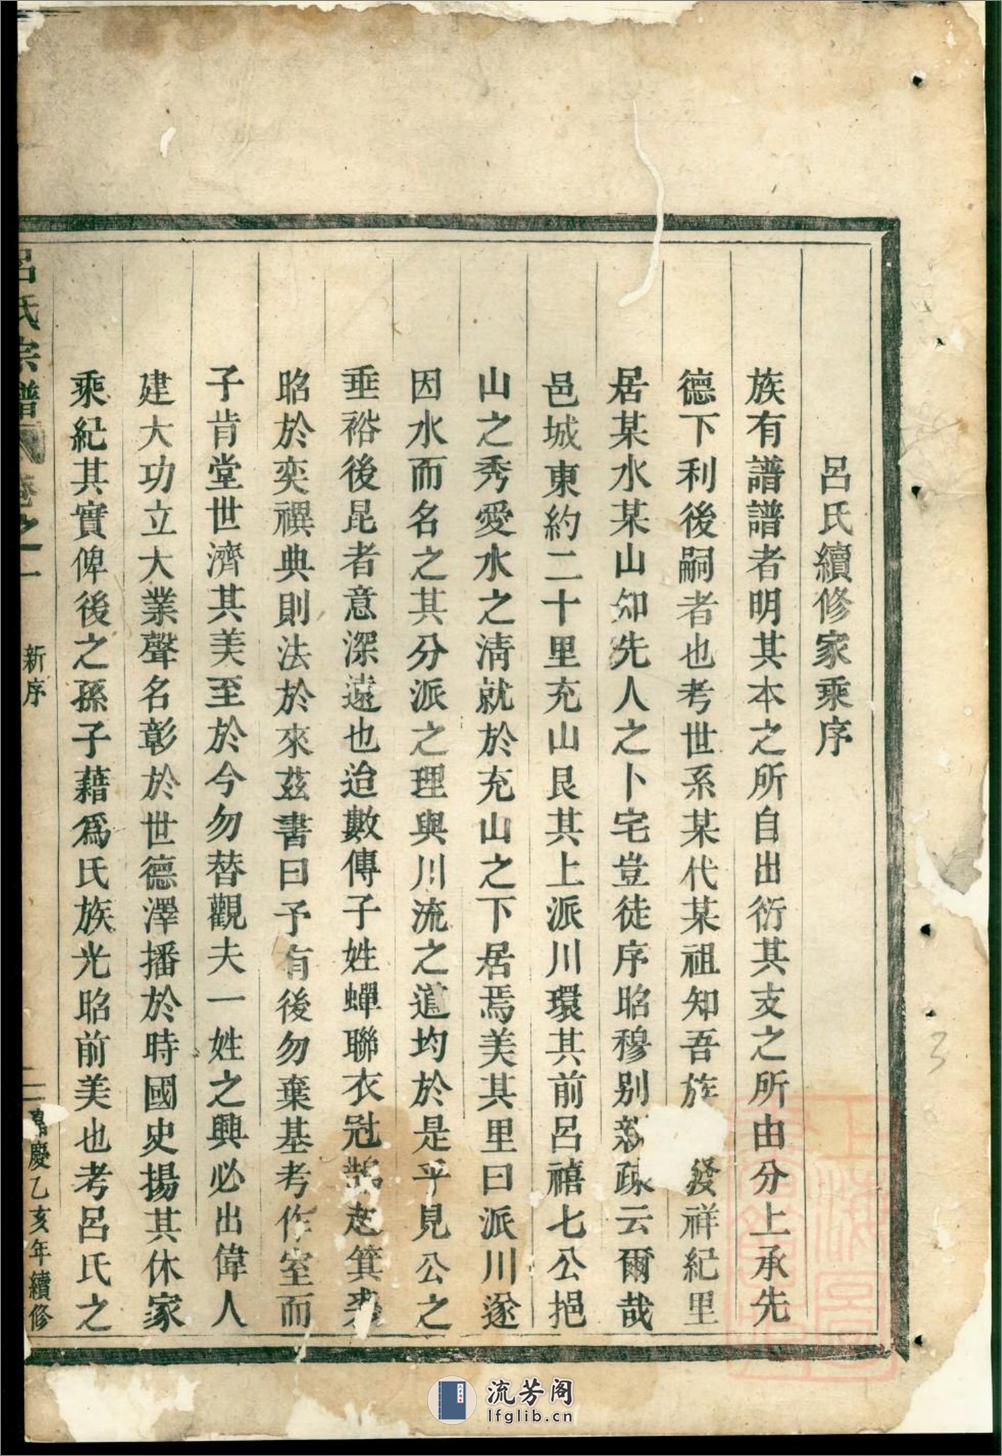 呂氏續修家乘序
族有譜譜者明其本之所自出衍其支之所由分上承先
德下利後嗣者也考世系某代某祖知吾族發祥紀里
居某水某山知先人之卜宅豈徒序昭穆别親疎云爾哉
邑城東約二十里充山艮其上派川環其前呂禧七公挹
山之秀愛水之淸就於充山之下居焉美其里曰派川遂
因水而名之其分派之理與川流之道均於是乎見公之
垂裕後昆者意深遠也迨數傳子姓蟬聯衣冠鵲起箕裘
昭於奕禩典則法於來茲書曰予有後勿棄基考作室而
子肯堂世濟其美至於今勿替觀夫一姓之興必出偉人
建大功立大業聲名彰於世德澤播於時國史揚其休家
乘紀其實俾後之孫子藉爲氏族光昭前美也考呂氏之
呂氏宗譜 卷之一 新序 二 慶乙亥年續修
流芳阁
lfglib.cn